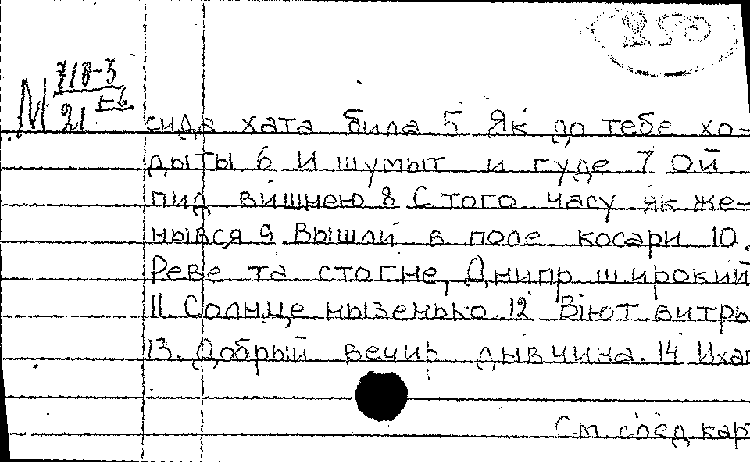 250
М 710-3
21 Еб
сида хата била 5 Як до тебе хо-
дыты 6 И шумыт и гуде 7 Ой
пид вишнею 8 С того часу як же-
нывся 9. Вышли в поле косари 10.
Реве та стогне, Днипр широкий
11. Солнце нызенько. 12 Віют витры
13. Добрый вечир дывчина. 14 Ихал
См. след кар